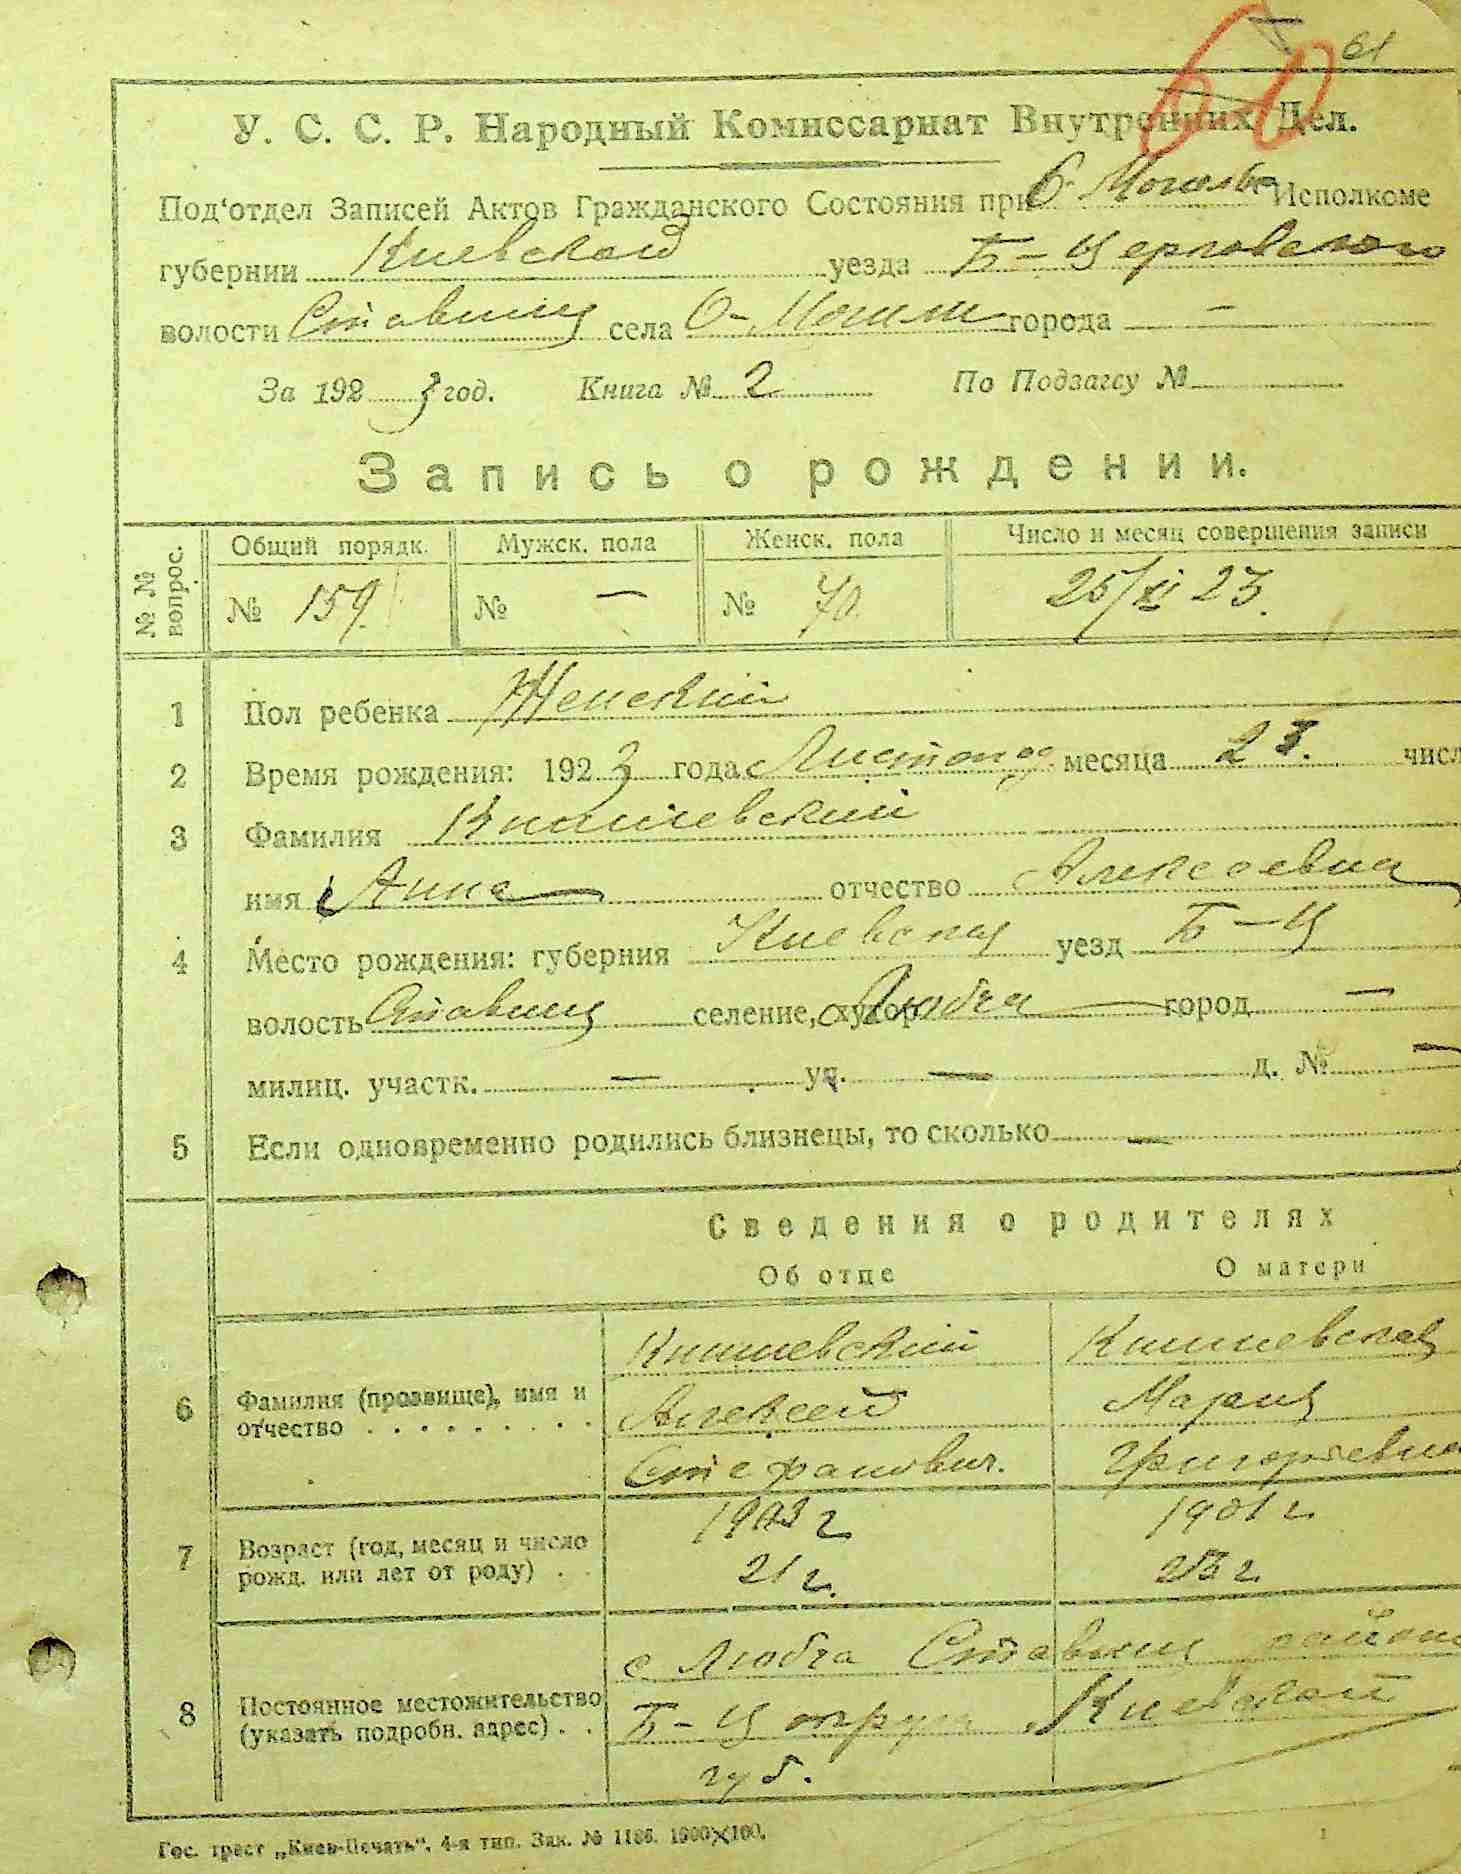 61
60
У. С. С. Р. Народный Комиссариат Внутренних Дел.
Под'отдел Записей Актов Гражданского Состояния при Исполкоме
губернии Киевской уезда Б-Церковского
волости Ставищ села города —
За 1923 год. Книга № 2 По Подзагсу №
Запись о рождении.
№ № вопрос. Общий порядк. Мужск. пола Женск. пола Число и месяц совершения записи
№ 159 № — № 70. 25/XI 23.
1 Пол ребенка Женский
2 Время рождения: 1923 года Листопад месяца 23. числ
3 Фамилия Кишиевский
имя Анна отчество Алексеевна
4 Место рождения: губерния Киевская уезд Б-Ц
волость Ставищ селение, хутор Любча город —
милиц. участк. — ул. — д. № —
5 Если одновременно родились близнецы, то сколько —
Сведения о родителях
Об отце О матери
6 Фамилия (прозвище), имя и отчество
Кишиевский Кишиевская
Алексей Мария
Стефанович. Григорьевна
7 Возраст (год, месяц и число рожд. или лет от роду)
1903 г 1901 г.
21 г. 23 г.
8 Постоянное местожительство (указать подробн. адрес)
с Любча Ставищ район
Б-Ц округа Киевской
губ.
Гос. трест „Киев-Печать". 4-я тип. Зак. № 1186. 1000×100.